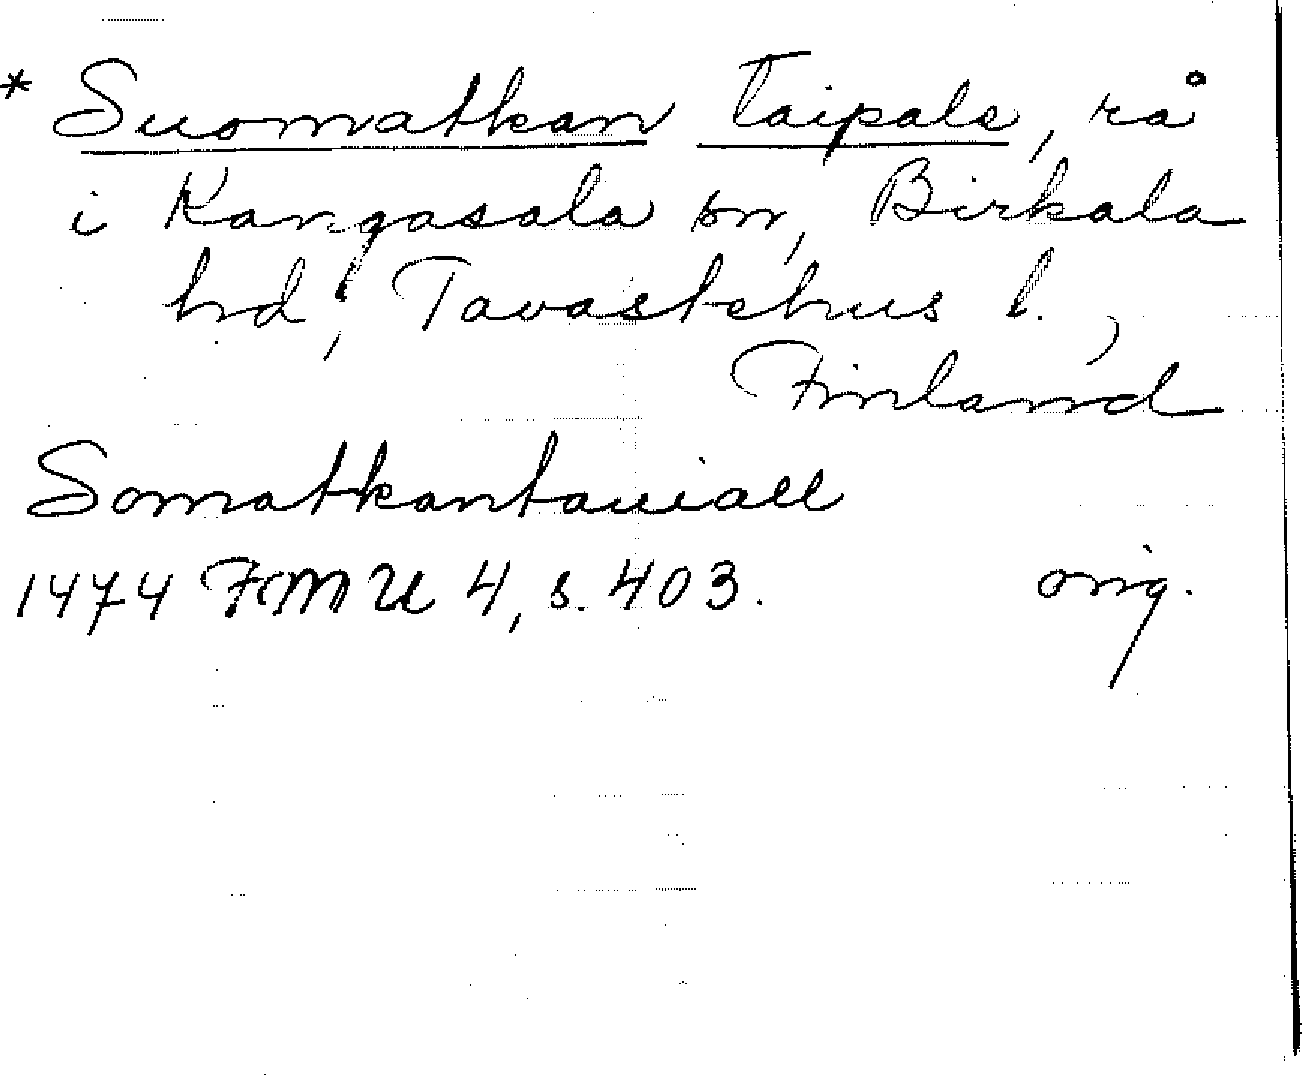 * Suomatkan Taipale, rå
i Kangasala sn, Birkala
hd, Tavastehus l.,
Finland
Somatkantauiall
1474 FMU 4, s. 403. orig.